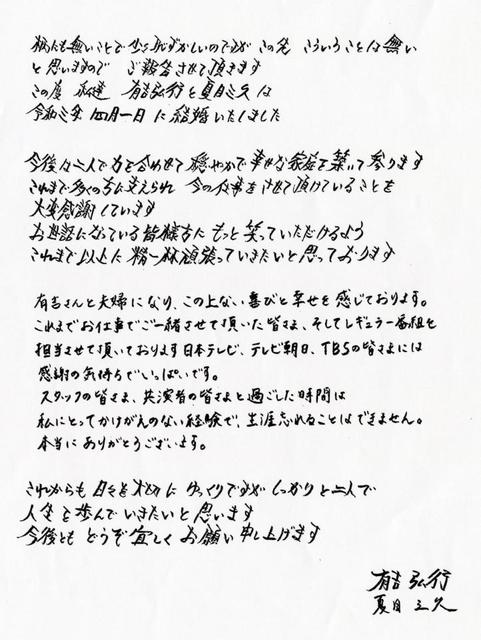 柄にも無いことで少々恥ずかしいのですが この先 こういうことは無い
と思いますので ご報告させて頂きます
この度 私達 有吉弘行と夏目三久は
令和三年 四月一日 に結婚いたしました
今後は二人で力を合わせて 穏やかで幸せな家庭を築いて参ります
これまで多くの方に支えられ 今の仕事をさせて頂けていることを
大変感謝しています
お世話になっている皆様方に もっと笑っていただけるよう
これまで以上に 精一杯頑張っていきたいと思っております
有吉さんと夫婦になり、この上ない喜びと幸せを感じております。
これまでお仕事でご一緒させて頂いた皆さま、そしてレギュラー番組を
担当させて頂いております日本テレビ、テレビ朝日、TBSの皆さまには
感謝の気持ちでいっぱいです。
スタッフの皆さま、共演者の皆さまと過ごした時間は
私にとってかけがえのない経験で、生涯忘れることはできません。
本当にありがとうございます。
これからも 日々を大切に ゆっくりですが しっかりと二人で
人生を歩んでいきたいと思います
今後とも どうぞ宜しく お願い申し上げます
有吉 弘行
夏目 三久